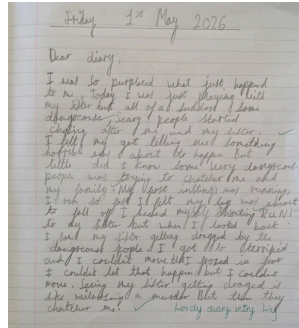 Friday 1st May 2026
Dear diary,
I was so purpleced what just happend
to me. Today I was just playing with
my sister but all of a sudden some
dangerouse, scary people started
chasing after me and my sister.
I felt my gut telling me something
horrible was about to happen but
little did I know some very dangerous
people was trying to chatcher me and
my family. My first was running.
I ran so fast I felt my leg was about
to fall of I heard myself shouting "RUN!"
to my sister but when I looked back
I saw my sister getting draged by the
dangerouse people I got so terrified
and I couldn't move
I couldn't let that happen but I couldnt
move. Seeing my sister getting draged is
like witnessing a murder But then they
chatcher me.
Lovely diary entry